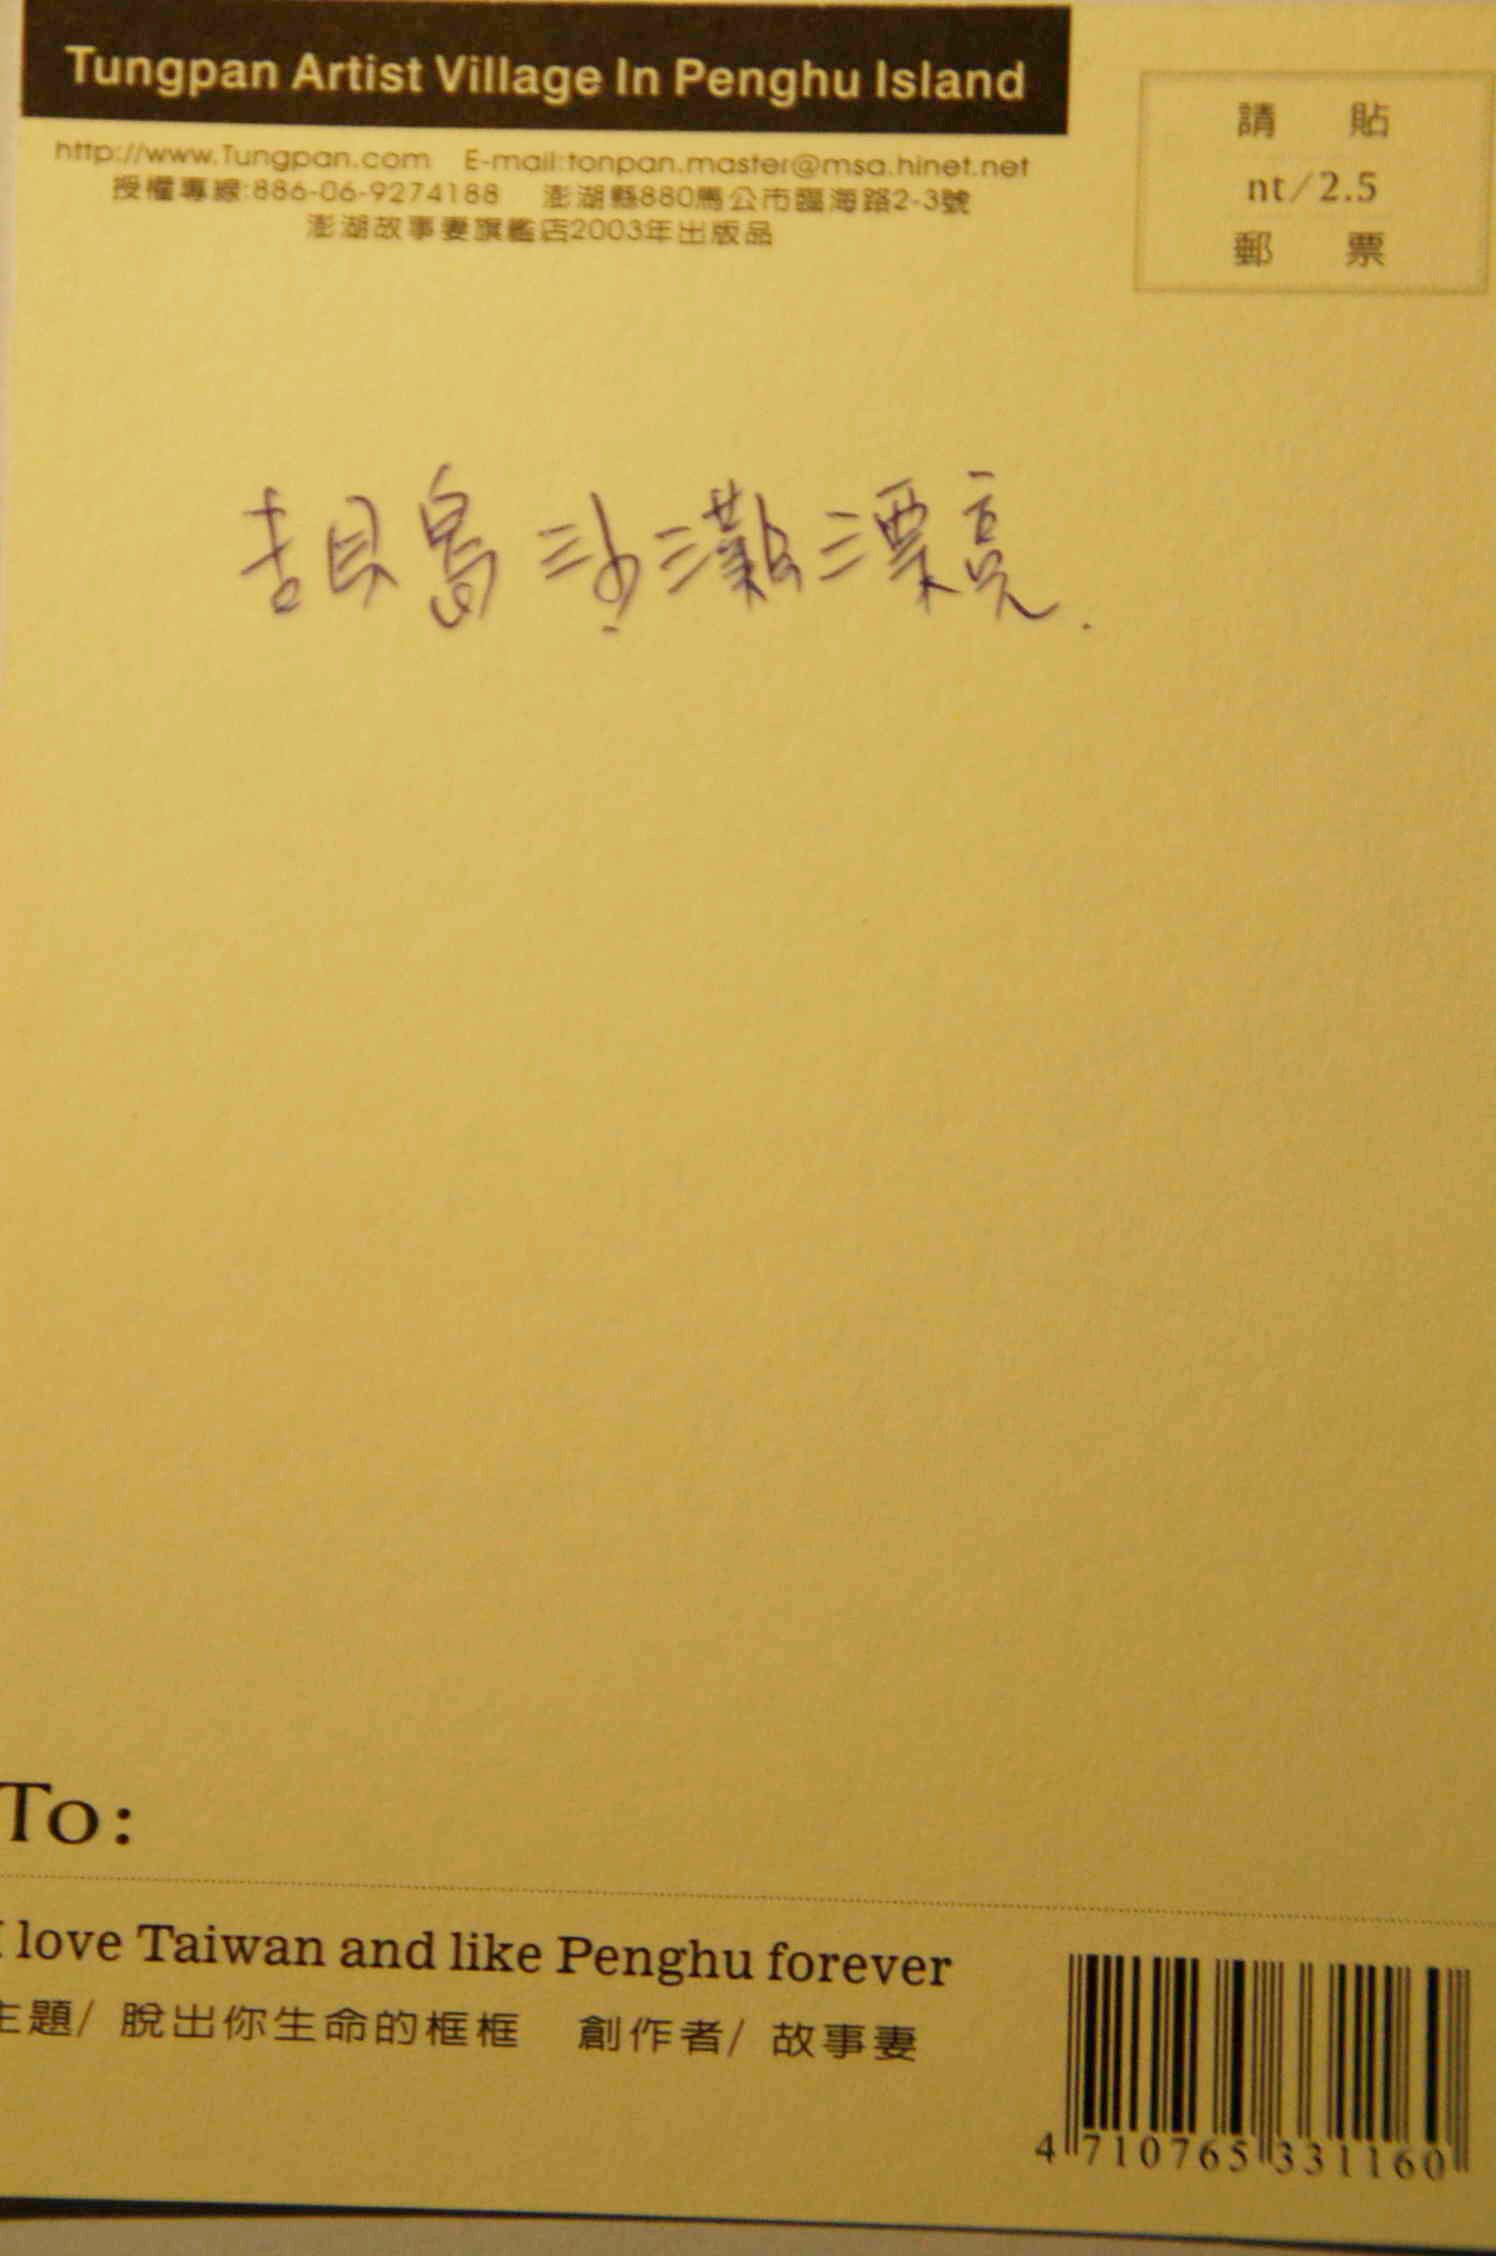 Tungpan Artist Village In Penghu Island
http://www.Tungpan.com E-mail:tonpan.master@msa.hinet.net
授權專線:886-06-9274188 澎湖縣880馬公市臨海路2-3號
澎湖故事妻旗艦店2003年出版品
請 貼
nt/2.5
郵 票
吉貝島沙灘漂亮.
To:
I love Taiwan and like Penghu forever
主題/ 脫出你生命的框框 創作者/ 故事妻
4 710765 331160